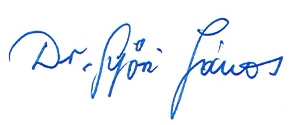 Dr. Győri János